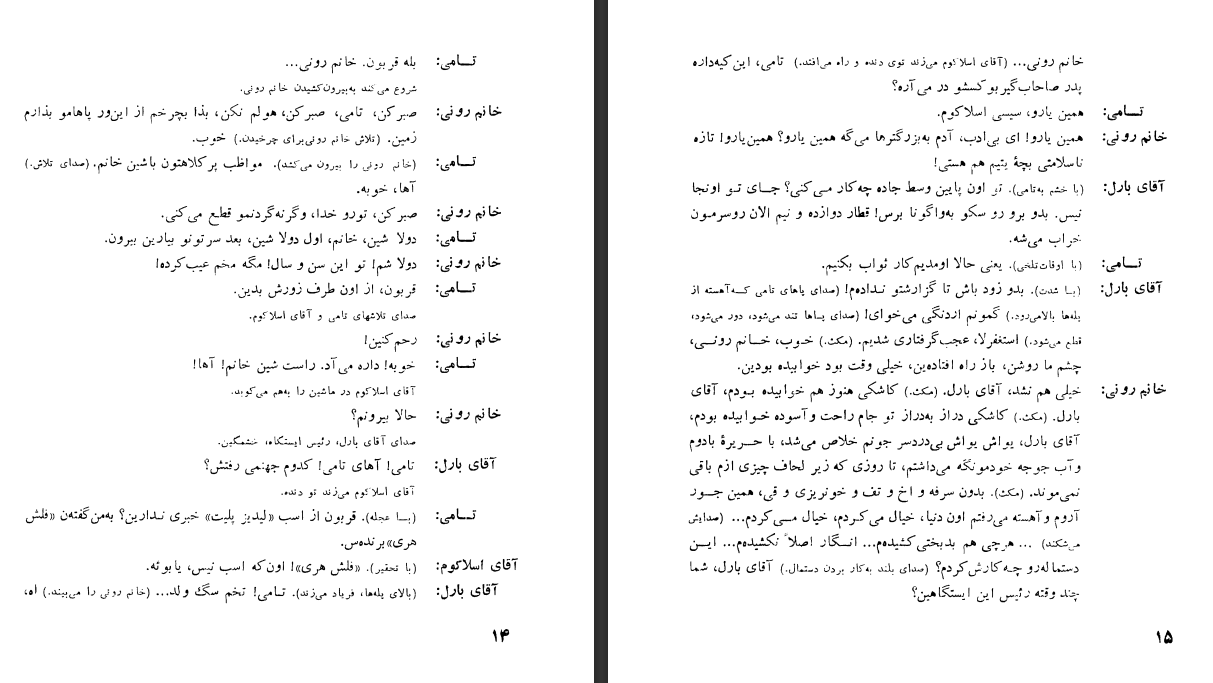 تامی: بله قربون. خانم رونی...
شروع می‌کند به‌بیرون‌کشیدن خانم رونی.
خانم رونی: صبرکن، تامی، صبرکن، هولم نکن، بذا بچرخم از این‌ور پاهامو بذارم
زمین. (تلاش خانم رونی‌برای چرخیدن.) خوب.
تامی: (خانم رونی را بیرون می‌کشد). مواظب پرکلاهتون باشین خانم. (صدای تلاش.)
آها، خوبه.
خانم رونی: صبرکن، تورو خدا، وگرنه‌گردنمو قطع می‌کنی.
تامی: دولا شین، خانم، اول دولا شین، بعد سرتونو بیارین بیرون.
خانم رونی: دولا شم! تو این سن و سال! مگه مخم عیب‌کرده!
تامی: قربون، از اون طرف زورش بدین.
صدای تلاشهای تامی و آقای اسلاکوم.
خانم رونی: رحم‌کنین!
تامی: خوبه! داره می‌آد. راست شین خانم! آها!
آقای اسلاکوم در ماشین را به‌هم می‌کوبد.
خانم رونی: حالا بیرونم؟
صدای آقای بارل، رئیس ایستگاه، خشمگین.
آقای بارل: تامی! آهای تامی! کدوم جهنمی رفتش؟
آقای اسلاکوم می‌زند تو دنده.
تامی: (بـا عجله). قربون از اسب «لیدیز پلیت» خبری ندارین؟ به‌من‌گفته‌ن «فلش
هری» برنده‌س.
آقای اسلاکوم: (با تحقیر). «فلش هری»! اون‌که اسب نیس، یابوئه.
آقای بارل: (بالای پله‌ها، فریاد می‌زند). تـامی! تخم سگ ولد... (خانم رونی را می‌بیند.) اه،
۱۴
خانم رونی... (آقای اسلاکوم می‌زند توی دنده و راه می‌افتد.) تامی، این‌کیه‌داره
پدر صاحاب‌گیربوکسشو در می‌آره؟
تامی: همین یارو، سیسی اسلاکوم.
خانم رونی: همین یارو! ای بی‌ادب، آدم به‌بزرگترها می‌گه همین یارو؟ همین‌یارو! تازه
ناسلامتی بچهٔ یتیم هم هستی!
آقای بارل: (با خشم به‌تامی). تو اون پایین وسط جاده چه‌کار می‌کنی؟ جـای تـو اونجا
نیس. بدو برو رو سکو به‌واگونا برس! قطار دوازده و نیم الان روسرمون
خراب می‌شه.
تامی: (با اوقات‌تلخی). یعنی حالا اومدیم‌کار ثواب بکنیم.
آقای بارل: (بـا شدت). بدو زود باش تا گزارشتو نـداده‌م! (صدای پاهای تامی کـه‌آهسته از
پله‌ها بالامی‌رود.) گمونم اردنگی می‌خوای! (صدای پـاها تند می‌شود، دور می‌شود،
قطع می‌شود.) استغفرلا، عجب‌گرفتاری شدیم. (مکث.) خـوب، خـانم رونـی،
چشم ما روشن، باز راه افتاده‌ین، خیلی وقت بود خوابیده بودین.
خانم رونی: خیلی هم نشد، آقای بارل. (مکث.) کاشکی هنوز هم خوابیده بـودم، آقای
بارل. (مکث.) کاشکی دراز به‌دراز تو جام راحت وآسوده خـوابیده بودم،
آقای بارل، یواش یواش بی‌دردسر جونم خلاص می‌شد، با حـریرهٔ بادوم
وآب جوجه خودمونگه می‌داشتم، تا روزی که زیر لحاف چیزی ازم باقی
نمی‌موند. (مکث). بدون سرفه و اخ و تف و خونریزی و قی، همین جـور
آروم وآهسته می‌رفتم اون دنیا، خیال می‌کـردم، خیال مـی‌کردم... (صدایش
می‌شکند) ... هرچی هم بدبختی‌کشیده‌م... انـگار اصلاً نکشیده‌م... ایـن
دستماله‌رو چـه‌کارش‌کردم؟ (صدای بلند به‌کار بردن دستمال.) آقای بارل، شما
چند وقته رئیس این ایستگاهین؟
۱۵